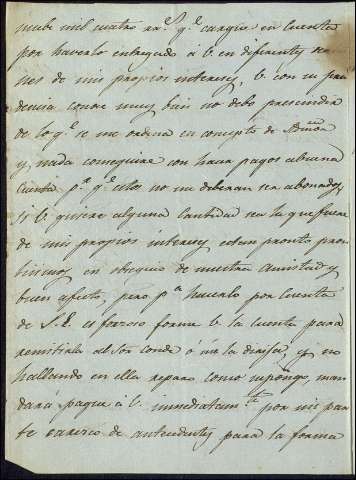 nuebe mil cuatro rr.s q.e cargué en Cuenta
por haverlo entregado á V. en diferentes
nes de mis propios intereses, V. con su pru
dencia conoce muy bien no debo prescindir
de lo q.e se me ordena en concepto de Admōr
y, nada conseguiré con hacer pagos a buena
Cuenta p.r q.e estos no me deberan ser abonados,
si V. quiere alguna Cantidad sea la que fuere
de mis propios intereses, estan prontos pron
tisimos en obsequio de nuestra amistad y
buen afecto, pero p.a hacerlo por Cuenta
de S. E. es forzoso forme V. la Cuenta para
remitirla al Sōr Conde ó me la dirija, y no
hallando en ella reparo como supongo, man
dará pague á V. inmediatam.te por mi par
te carezco de antecedentes para la forma